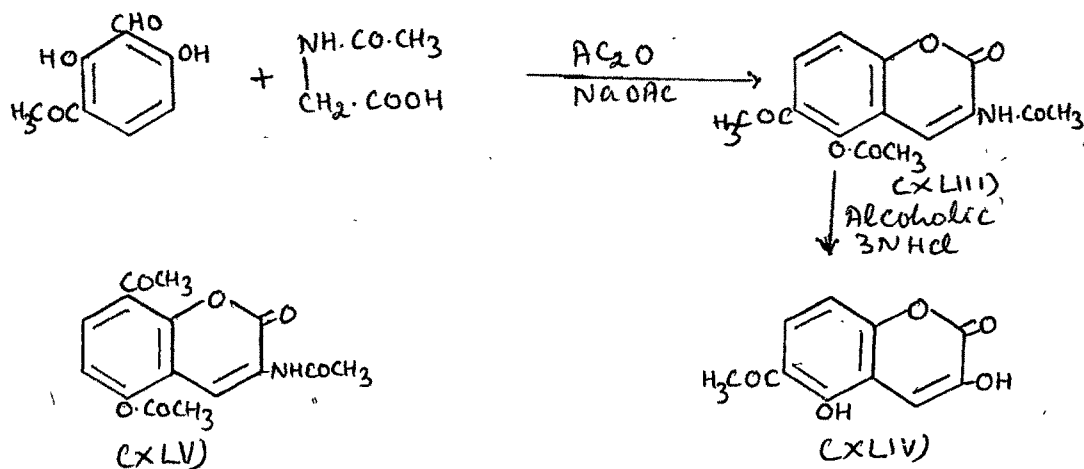 CHO
HO OH
H₃COC
+
NH·CO·CH₃
CH₂·COOH
AC₂O
NaOAc
O O
H₃COC NH·COCH₃
O·COCH₃
(XLIII)
Alcoholic
3N HCl
COCH₃
O O
NHCOCH₃
O·COCH₃
(XLV)
O O
H₃COC OH
OH
(XLIV)